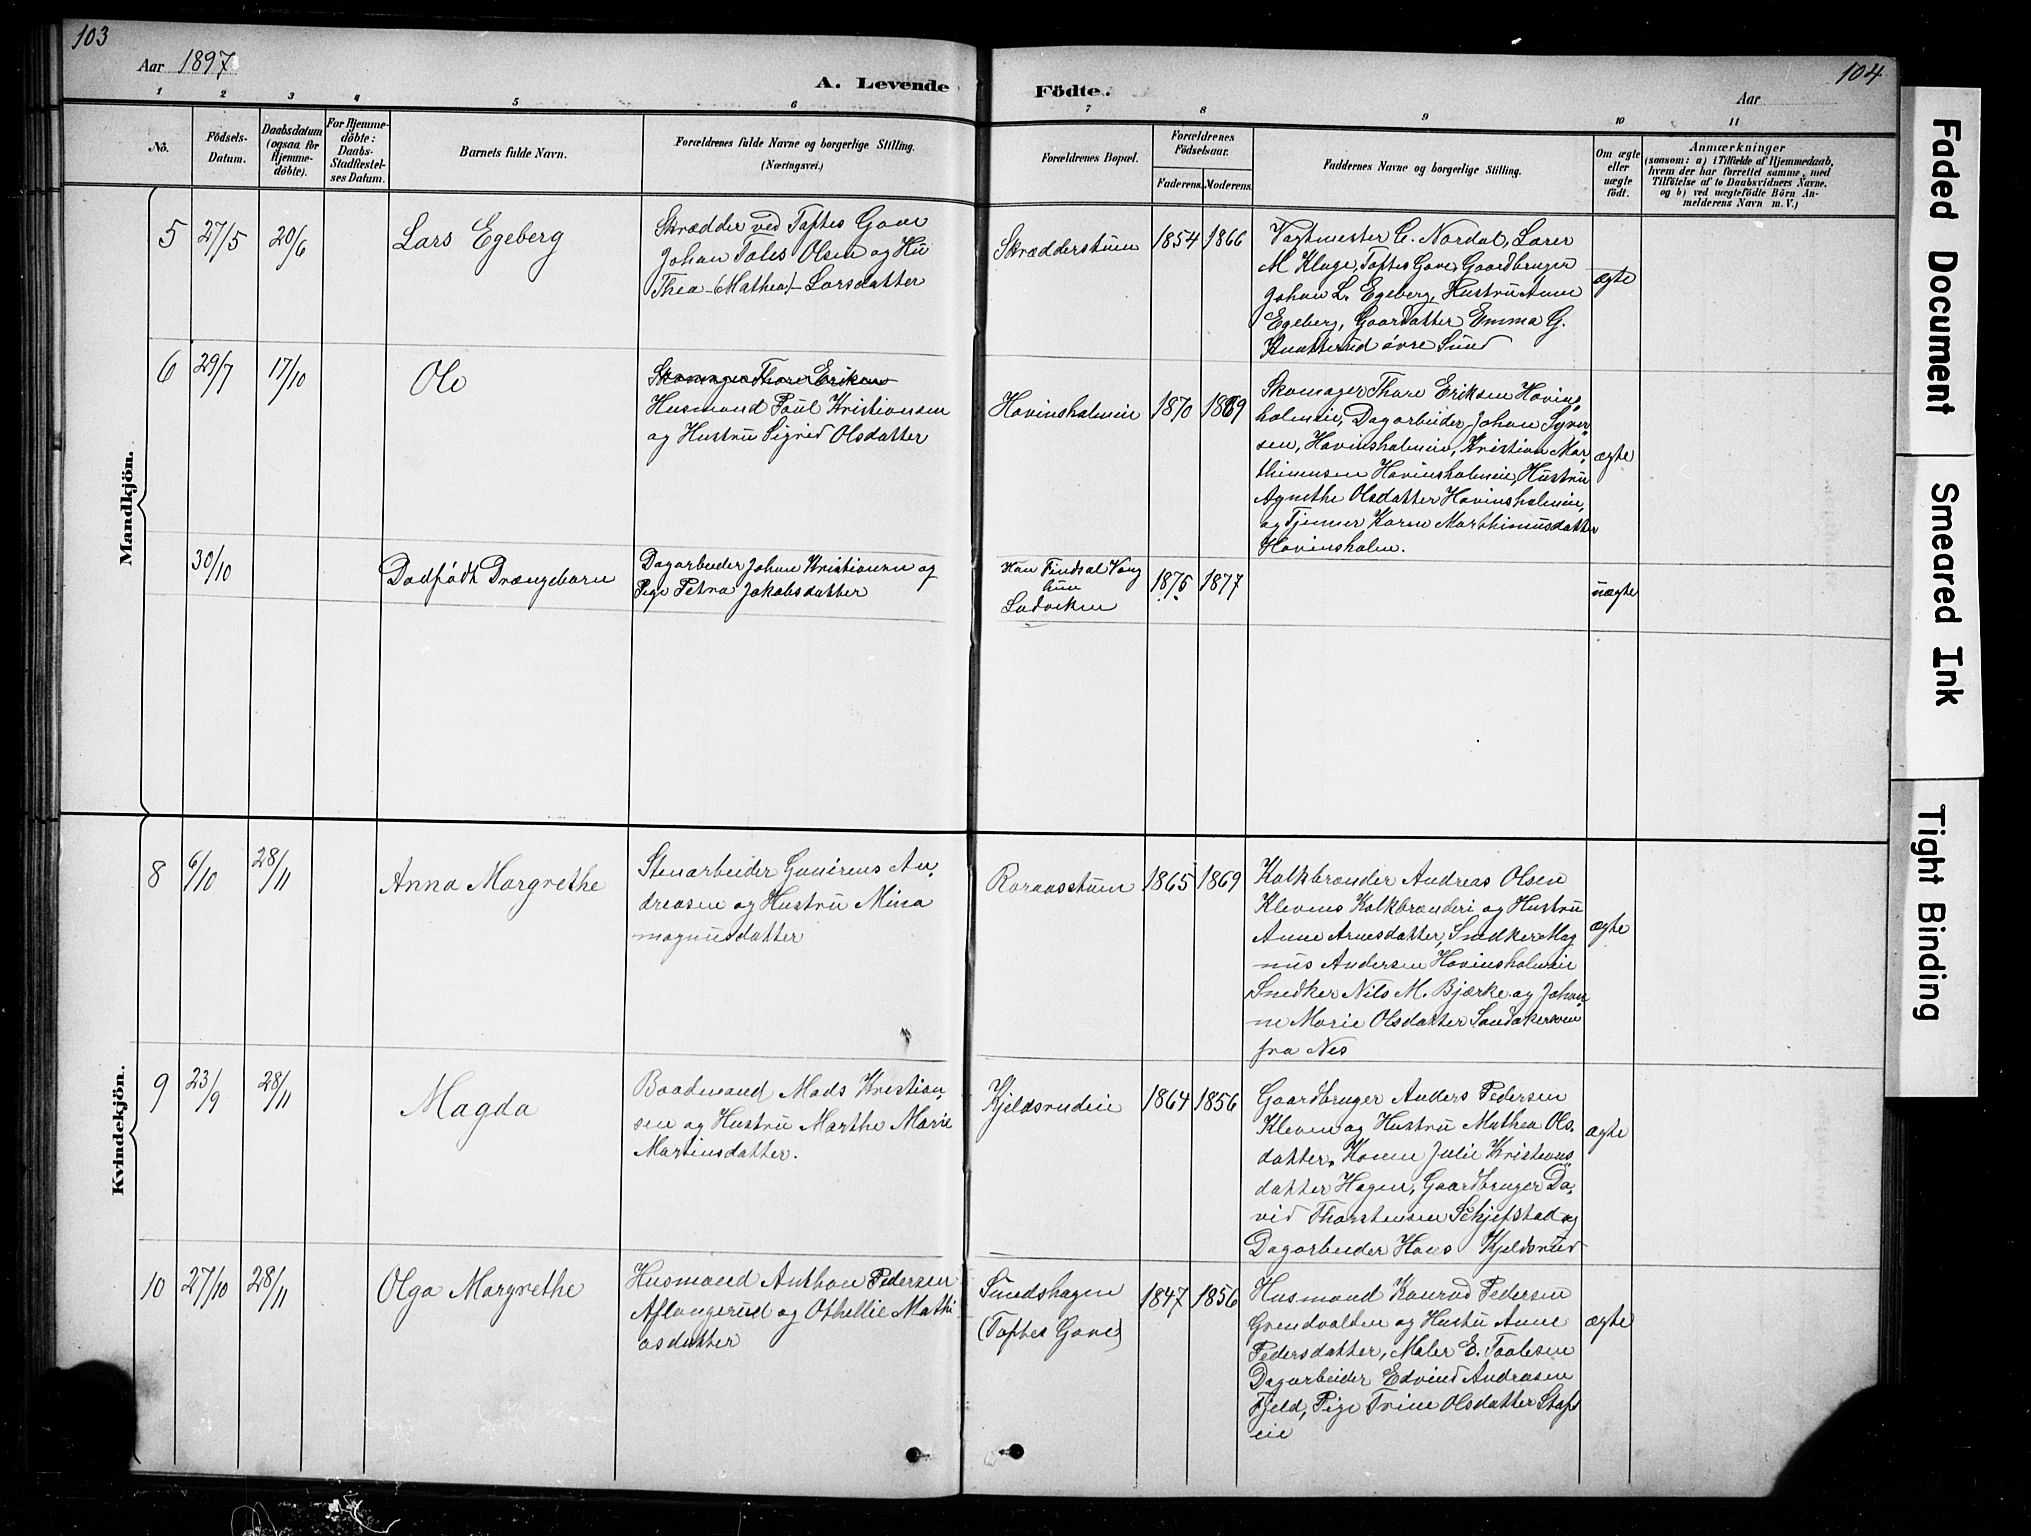 103
Aar 1897
A. Levende
Födte.
104
Aar
1 2 3 4 5 6 7 8 9 10 11
Nō.
Födsels-
Datum.
Daabsdatum
(ogsaa for
Hjemme-
döbte).
For Hjemme-
döbte:
Daabs-
Stadfæstel-
ses Datum.
Barnets fulde Navn.
Forældrenes fulde Navne og borgerlige Stilling.
(Næringsvei.)
Forældrenes Bopæl.
Forældrenes
Födselsaar.
Faderens. Moderens.
Faddernes Navne og borgerlige Stilling.
Om ægte
eller
uægte
födt.
Anmærkninger
(saasom: a) i Tilfælde af Hjemmedaab,
hvem der har forrettet samme, med
Tilföielse af to Daabsvidners Navne,
og b) ved uægtefödte Börn An-
melderens Navn m. V.)
Mandkjön.
5
27/5
20/6
Lars Egeberg
Skrædder ved Toftes Gave
Johan Tolis Olsen og Hu
Thea (Mathea) Larsdatter
Skrædderstuen
1854
1866
Vagtmester C. Nordal, Lærer
M Kluge, Toftes Gave, Gaardbruger
Johan L. Egeberg, Hustru Anne
Egeberg, Gaardatter Emma G.
Knatterud øvre Sund
ægte
6
29/7
17/10
Ole
Skomager Thore Eriksen
Husmand Poul Kristiansen
og Hustru Sigrid Olsdatter
Hovinsholmeie
1870
1869
Skomager Thore Eriksen Hovins
holmeie, Dagarbeider Johan Syver
sen, Hovinsholmeie, Kristian Mar
thinusen Hovinsholmeie, Hustru
Agnethe Olsdatter Hovinsholmeie,
og Tjener Karen Marthinusdatter
Hovinsholm.
ægte
30/10
Dødfødt Drængebarn
Dagarbeider Johan Kristiansen og
Pige Petra Jakobsdatter
Han Findsal Vang
hun
Ludviken
1875
1877
uægte
Kvindekjön.
8
6/10
28/11
Anna Margrethe
Stenarbeider Gunerius An
dreasen og Hustru Mina
magnusdatter
Roraasstuen
1865
1869
Kalkbrænder Andreas Olsen
Klevens Kalkbrænderi og Hustru
Anne Arnesdatter, Snedker Mag
nus Andersen Hovinsholmeie
Snedker Nils M. Bjærke og Johan
ne Marie Olsdatter Sandakereie
fra Nes
ægte
9
23/9
28/11
Magda
Baadmand Mads Kristian
sen og Hustru Marthe Marie
Martinsdatter.
Kjeldsrudeie
1864
1856
Gaardbruger Anders Pedersen
Kleven og Hustru Mathea Ols
datter, Konen Julie Kristians
datter Hagen, Gaardbruger Da
vid Thorstensen Schjefstad og
Dagarbeider Hans Kjeldsrud
ægte
10
27/10
28/11
Olga Margrethe
Husmand Anthon Pedersen
Aflangerud og Othellie Mathi
asdatter
Sundshagen
(Toftes Gave)
1847
1856
Husmand Konrad Pedersen
Grendvolden og Hustru Anne
Pedersdatter, Maler E. Taalesen
Dagarbeider Edvind Andreasen
Fjeld, Pige Trine Olsdatter Staf
eie
ægte
Faded Document
Smeared Ink
Tight Binding